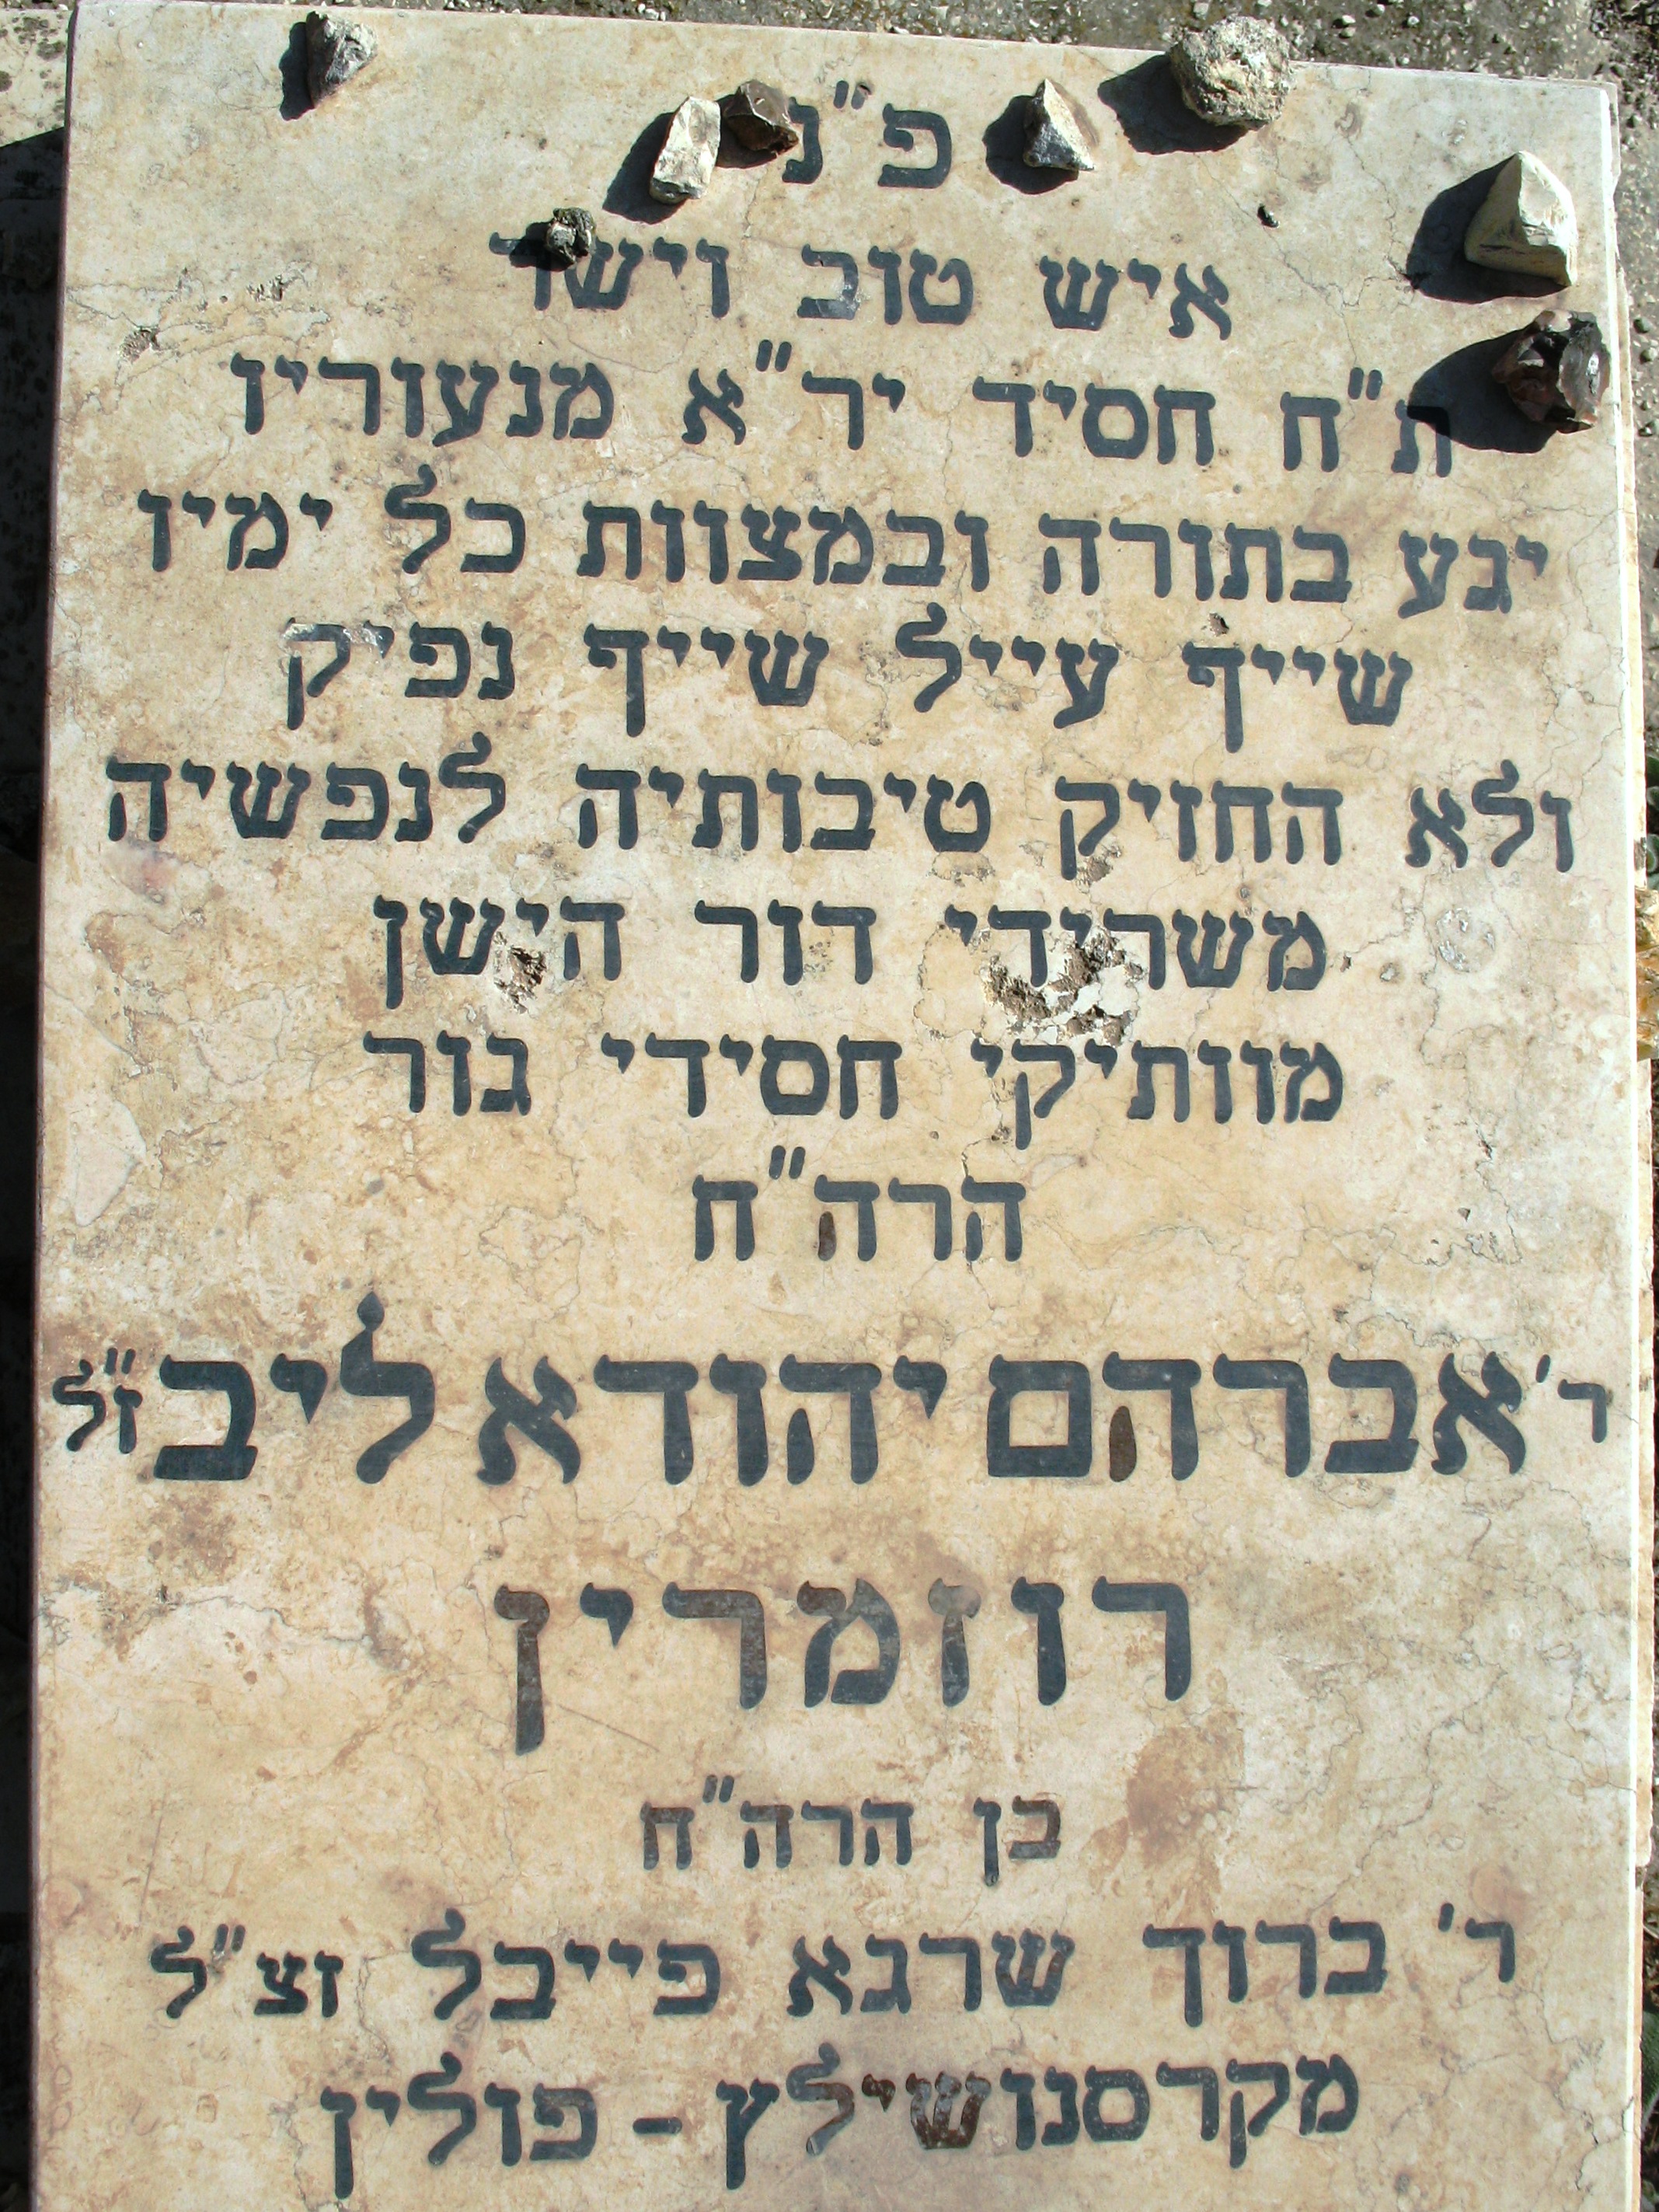 פ"נ
איש טוב וישר
ת"ח חסיד יר"א מנעוריו
יגע בתורה ובמצוות כל ימיו
שייף עייל שייף נפיק
ולא החזיק טיבותיה לנפשיה
משרידי דור הישן
מוותיקי חסידי גור
הרה"ח
ר' אברהם יהודא ליב ז"ל
רוזמרין
בן הרה"ח
ר' ברוך שרגא פייבל זצ"ל
מקרסנושילץ - פולין